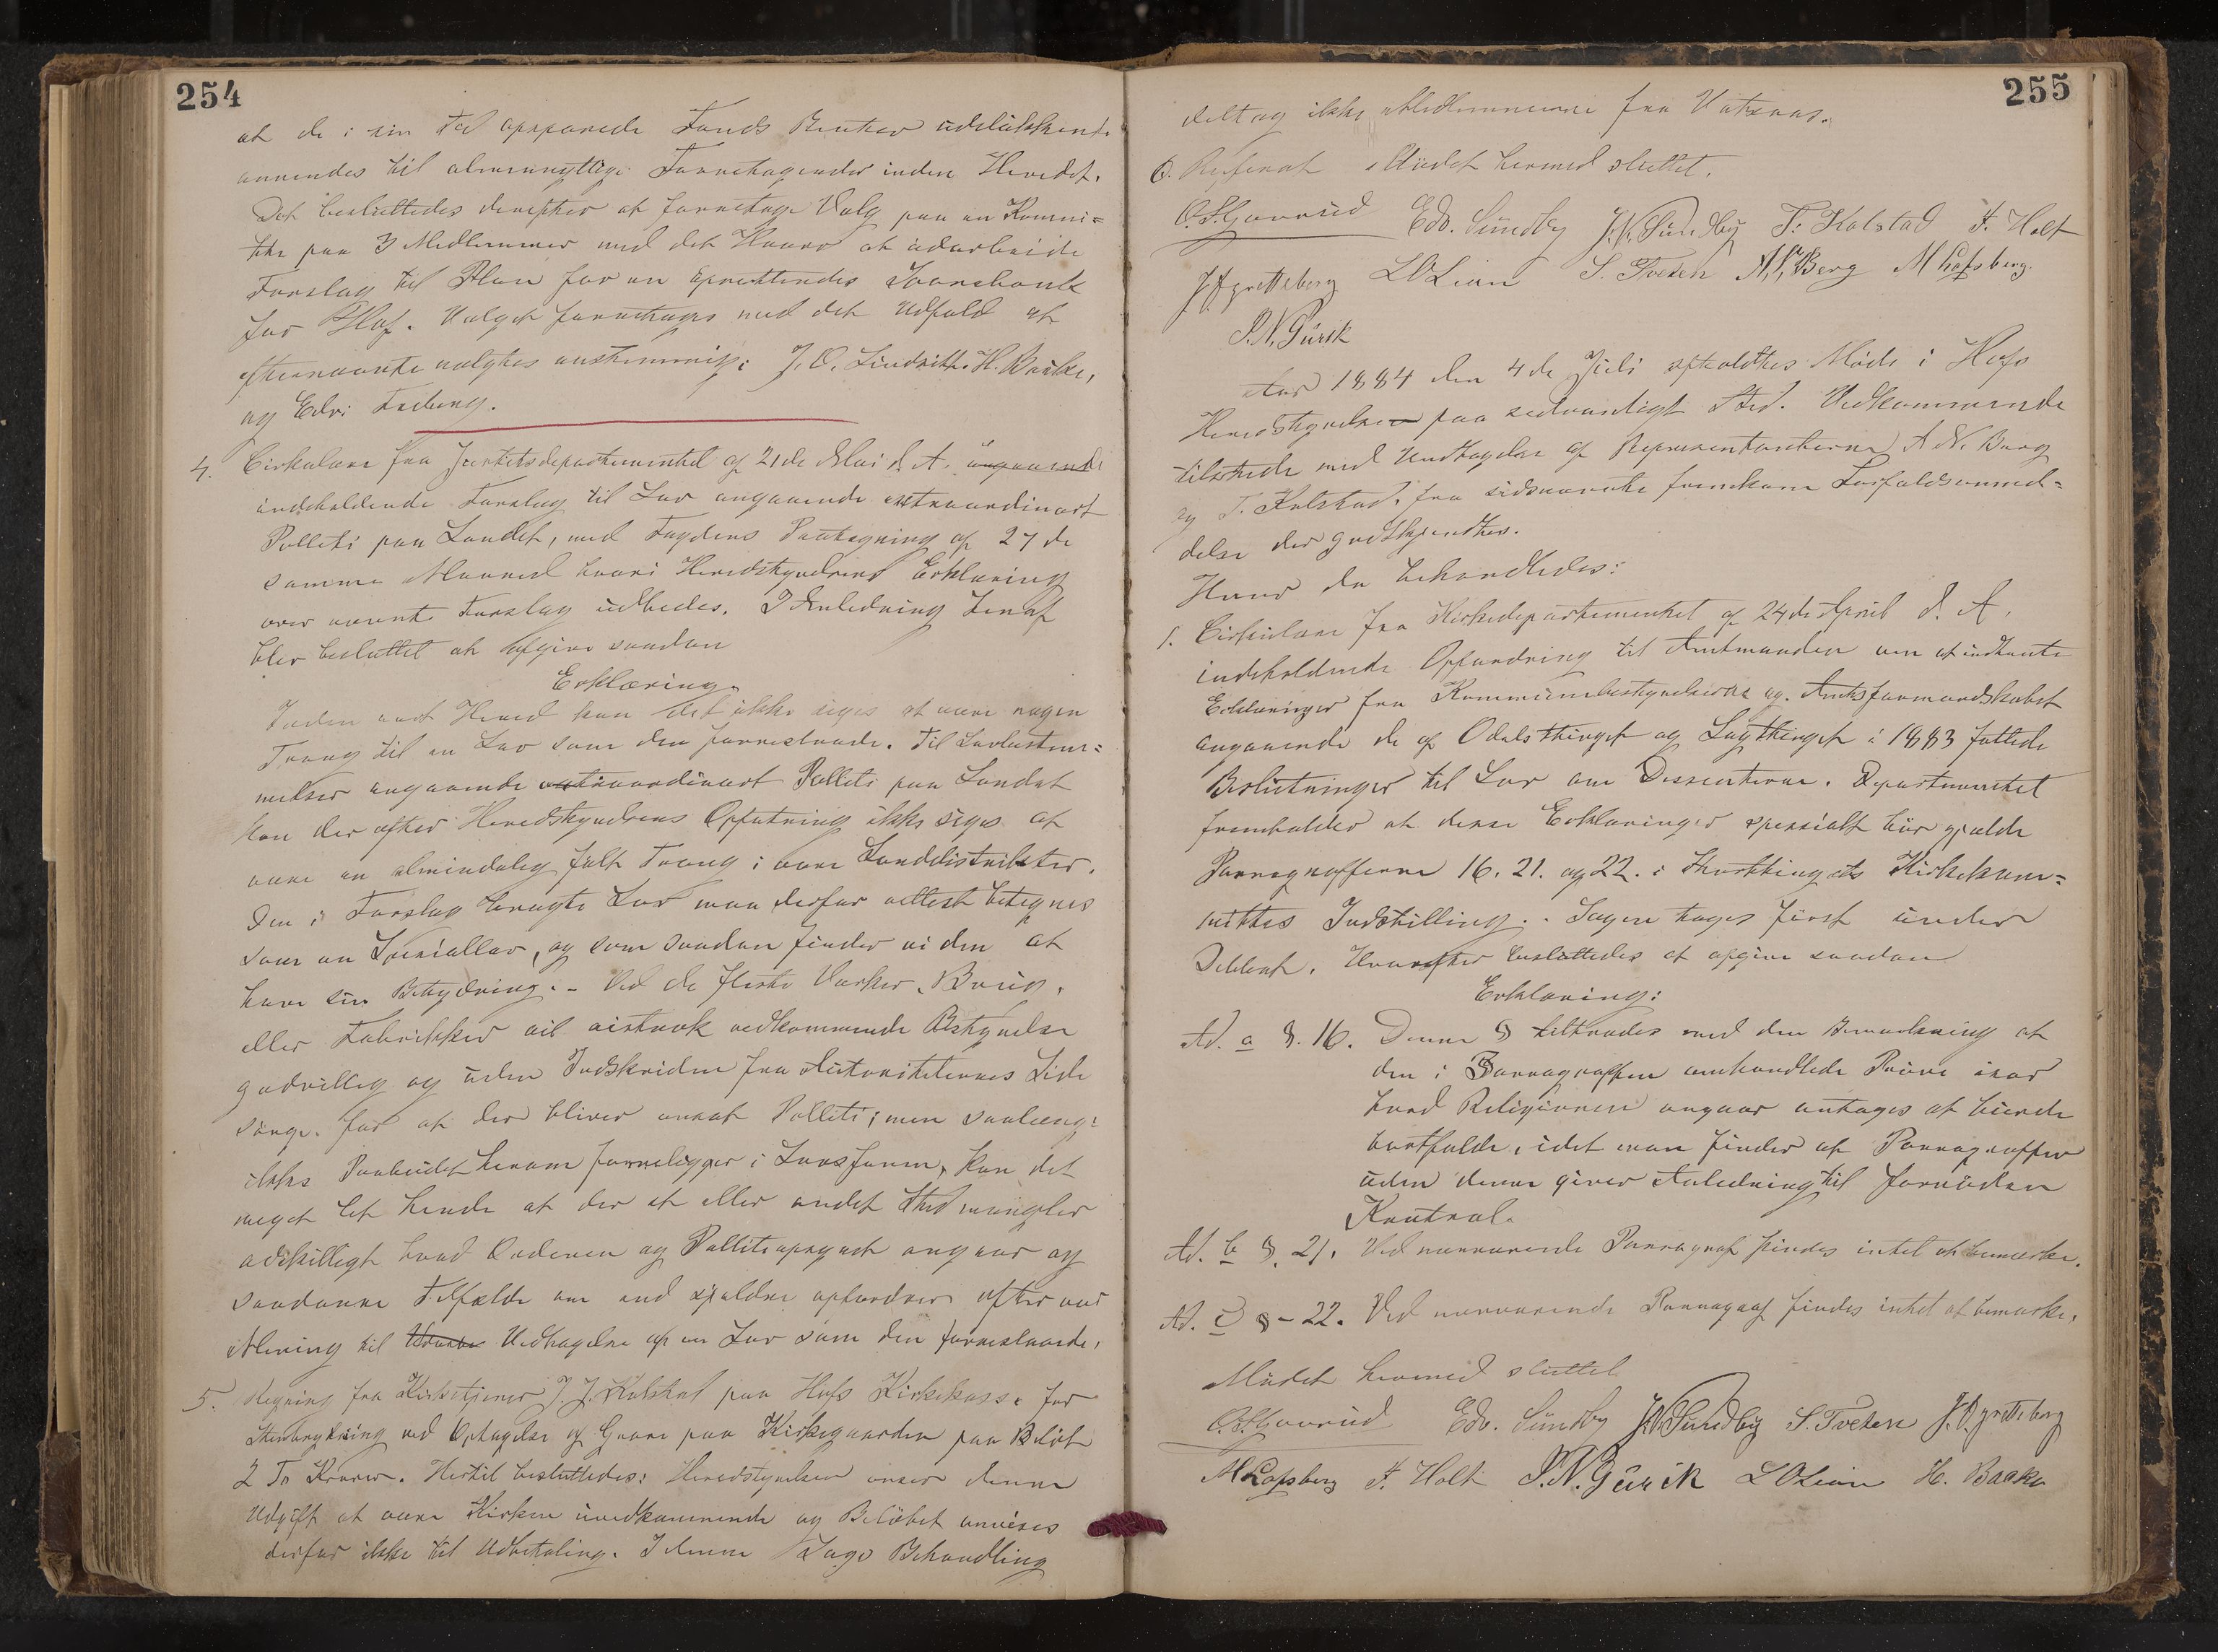 254
at de i sin Tid opsparede Fonds Renter udelukkende
anvendes til almennyttige Foretagender inden Heredet.
Det besluttedes derefter at foretage Valg paa en Kommi=
tte paa 3 Medlemmer med det Hværv at udarbeide
Forslag til Plan for en oprettendes Sparebank
for Hof. Valget foretoges med det Udfald at
efternævnte valgtes enstemmig: J. O. H. Baake,
og Edv:
4. Cirkulære fra Justitsdepartementet af 21de Mai d. A. angaaende
indeholdende Forslag til Lov angaaende extraordinært
Politi paa Landet, med Fogdens Paategning af 27de
samme Maaned hvori Heredstyrelsens Erklæring
over nævnte Forslag udbedes. I Anledning heraf
blev besluttet at afgive saadan
Erklæring.
Inden vort Hered kan det ikke siges at være nogen
Trang til en Lov som den foreslaaede. Til Lovbestem=
melser angaaende extraordinært Politi paa Landet
kan der efter Heredstyrelsens Opfatning ikke siges at
være en almindelig følt Trang i vore Landdistrikter.
Den i Forslag bragte Lov maa derfor rettest betegnes
som en Speciallov, og som saadan finder vi den at
have sin Betydning. - Ved de fleste Værker, Brug,
eller Fabrikker vil vistnok vedkommende Bestyrelse
godvillig og uden Indskriden fra Autoriteternes Side
sørge for at der bliver ansat Politi; men saalænge
ikke Paabudet herom foreligger i Lovsform, kan det
meget let hende at der et eller andet Sted mangler
adskilligt hvad Ordenen og Politiopsynet angaar og
saadanne Tilfælde om end sjældne opfordrer efter vor
Mening til Vedtagelse af en Lov som den foreslaaede.
5. Regning fra Kirketjener J. J. Kolstad paa Hofs Kirkekasse for
Stenbrydning ved Optagelse af Grave paa Kirkegaarden paa Beløb
2 To Kroner. Hertil besluttedes: Heredstyrelsen anser denne
Udgift at være Kirken uvedkommende og Beløbet anvises
derfor ikke til Udbetaling. I denne Sags Behandling
255
deltog ikke Medlemmerne fra Vatsaas.
6. Referat Mødet hermed sluttet.
O. S. Gavrud Edv. Sundby J. N. Sundby T. Kolstad F. Holt
J. Agretteberg L O Lian S. Tveten A. N. Berg M Lofsberg
P. N. Gurik
Aar 1884 den 4de Juli afholdtes Møde i Hofs
Heredstyrelse paa sedvanligt Sted. Vedkommende
tilstede med Undtagelse af Repræsentanterne A. N. Berg
og T. Kolstad, fra sidsnævnte fremkom Forfaldsanmel=
delse der godkjendtes.
Hvor da behandledes:
1. Cirkulære fra Kirkedepartementet af 24de April d. A.
indeholdende Opfordring til Amtmanden om at indhente
Erklæringer fra Kommunebestyrelserne og Amtsformandskabet
angaaende de af Odelsthinget og Lagthinget i 1883 fattede
Beslutninger til Lov om Dissenterne. Departementet
fremholder at denne Erklæringer specialt bør gjælde
Paragrafferne 16. 21. og 22. i Storthingets Kirkekom=
mittes Indstilling. - Sagen toges først under
Debbat. Hvorefter besluttedes at afgive saadan
Erklæring:
Ad. a §. 16. Denne § tiltrædes med den Bemærkning at
den i Paragraffen omhandlede Prøve især
hvad Religionen angaar antages at burde
bortfalde, idet man finder at Paragraffer
uden denne giver Anledning til fornøden
Kontrol.
Ad. b §. 21. Ved nærværende Paragraf findes intet at bemærke.
Ad. c) § - 22. Ved nærværende Paragraf findes intet at bemærke.
Mødet hermed sluttet
O. S. Gavrud Edv. Sundby J. N. Sundby S. Tveten J. Agretteberg
M Lofsberg F. Holt P. N. Gurik L O Lian H. Baake